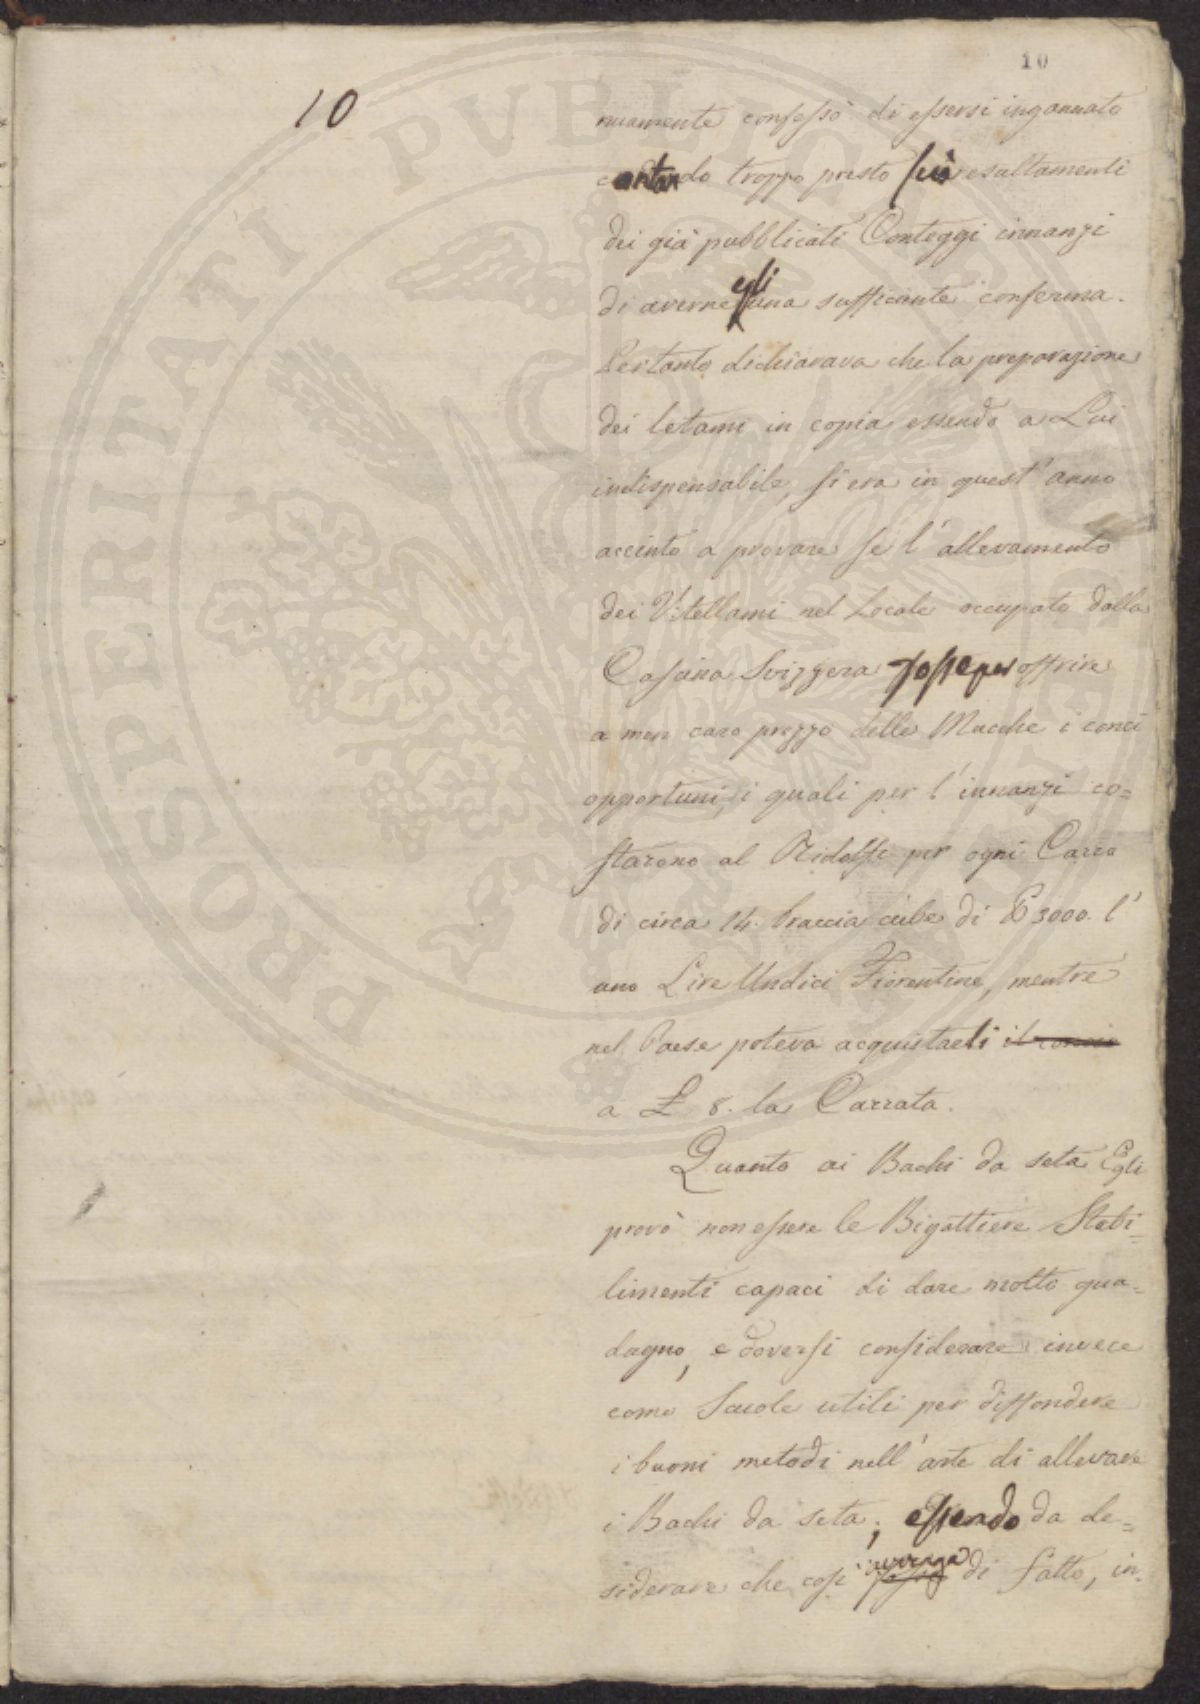 10
10
nuamente confessò di essersi ingannato
cantando troppo presto sui resultamenti
dei già pubblicati Conteggi innanzi
di averne egli una sufficiente conferma.
Pertanto dichiarava che la preparazione
dei letami in copia essendo a Lui
indispensabile, si era in quest'anno
accinto a provare se l'allevamento
dei Vitellami nel Locale occupato dalla
Casina Svizzera fosse per offrire
a men caro prezzo delle Mucche i conci
opportuni, i quali per l'innanzi co=
starono al Ridolfi per ogni Carro
di circa 14. braccia cube di ℔ 3000. l'
uno Lire Undici Fiorentine, mentre
nel Paese poteva acquistarli il concio
a £ 8. la Carrata.
Quanto ai Bachi da seta Egli
provò non essere le Bigattiere Stabi=
limenti capaci di dare molto gua=
dagno, e doversi considerare invece
come Scuole utili per diffondere
i buoni metodi nell'arte di allevare
i Bachi da seta; essendo da de=
siderare che così avvenga di fatto, in=
PROSPERITATI PUBLICAE AUGENDAE